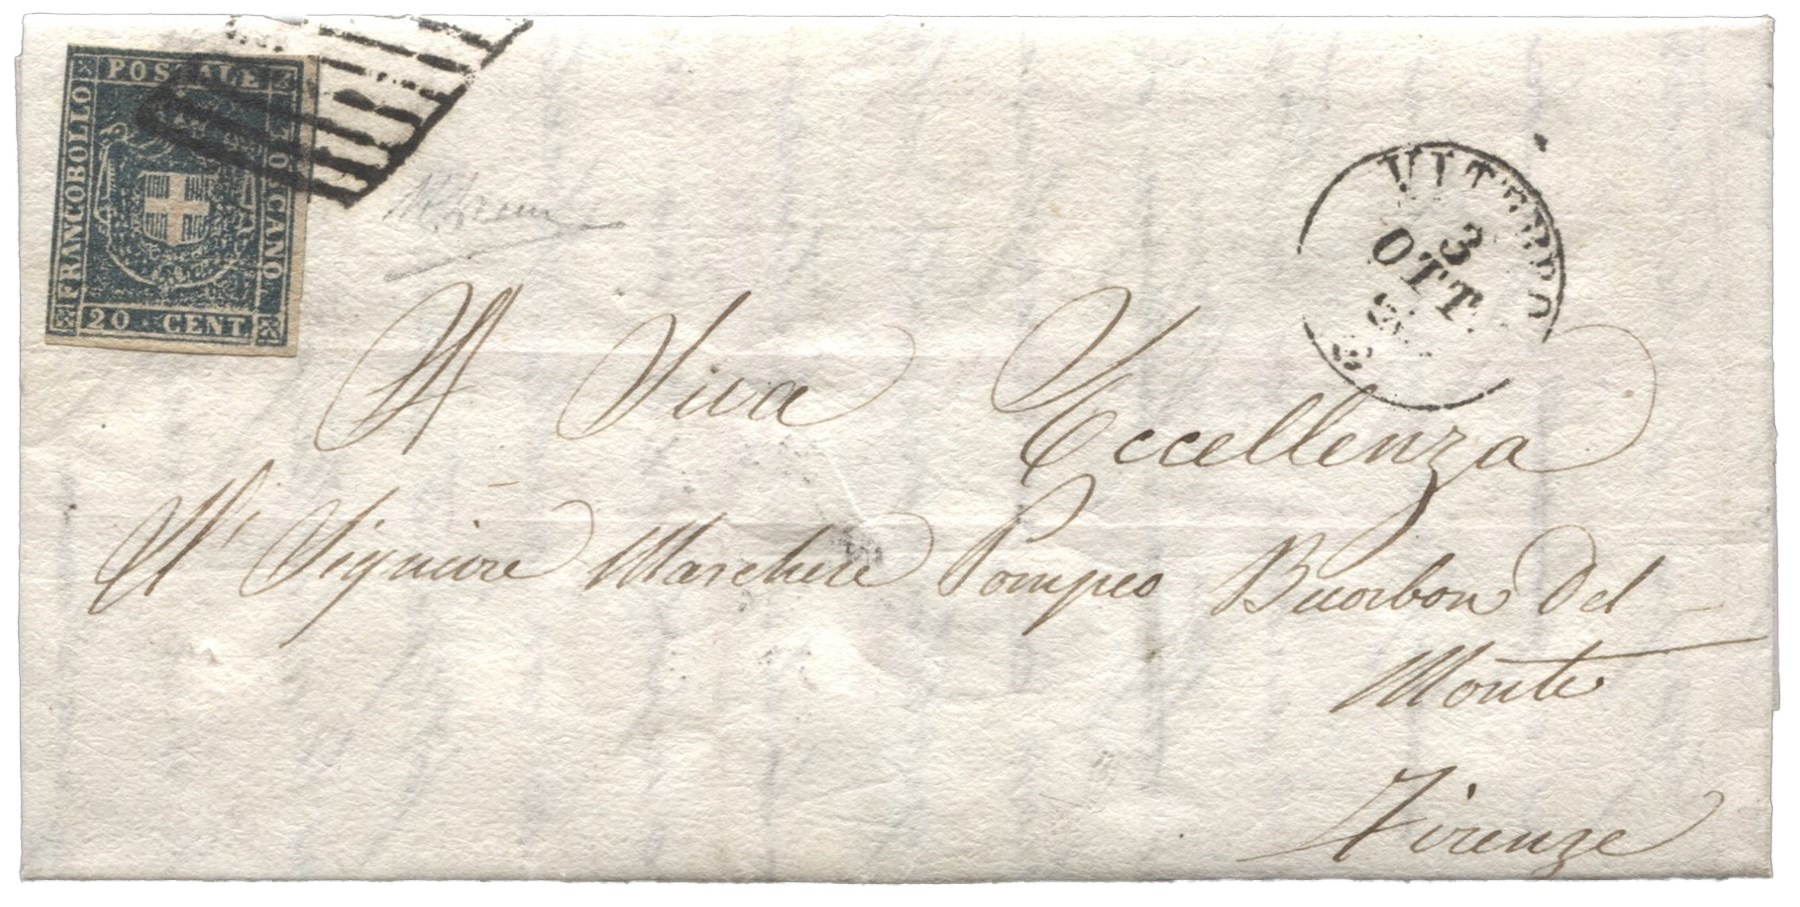 POSTALE
FRANCOBOLLO
TOSCANO
20 CENT
VITERBO
3
OTT
A Sua Eccellenza
Al Signiore Marchese Pompeo Buorbon Del
Monte
Firenze